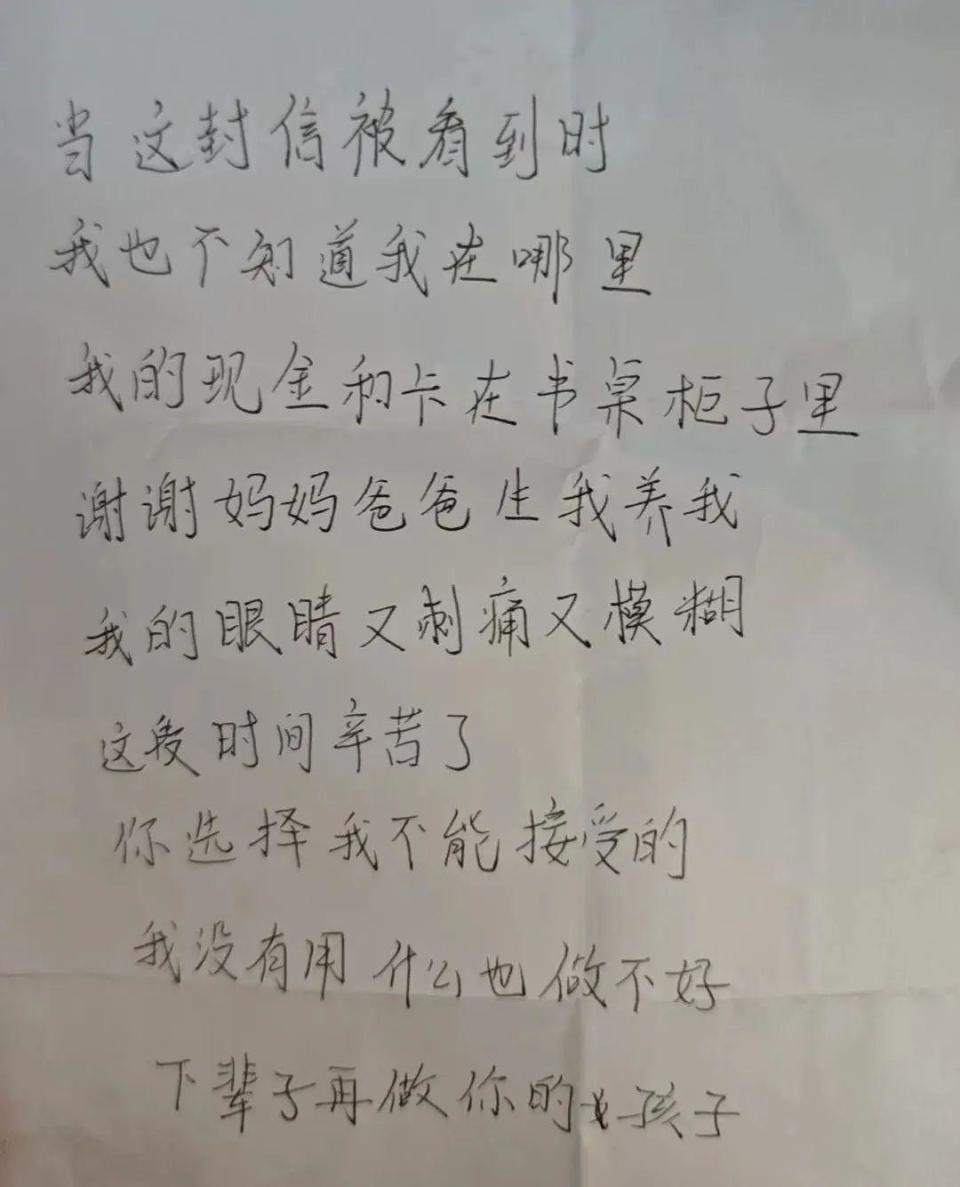 当这封信被看到时
我也不知道我在哪里
我的现金和卡在书桌柜子里
谢谢妈妈爸爸生我养我
我的眼睛又刺痛又模糊
这段时间辛苦了
你选择我不能接受的
我没有用 什么也做不好
下辈子再做你的女孩子